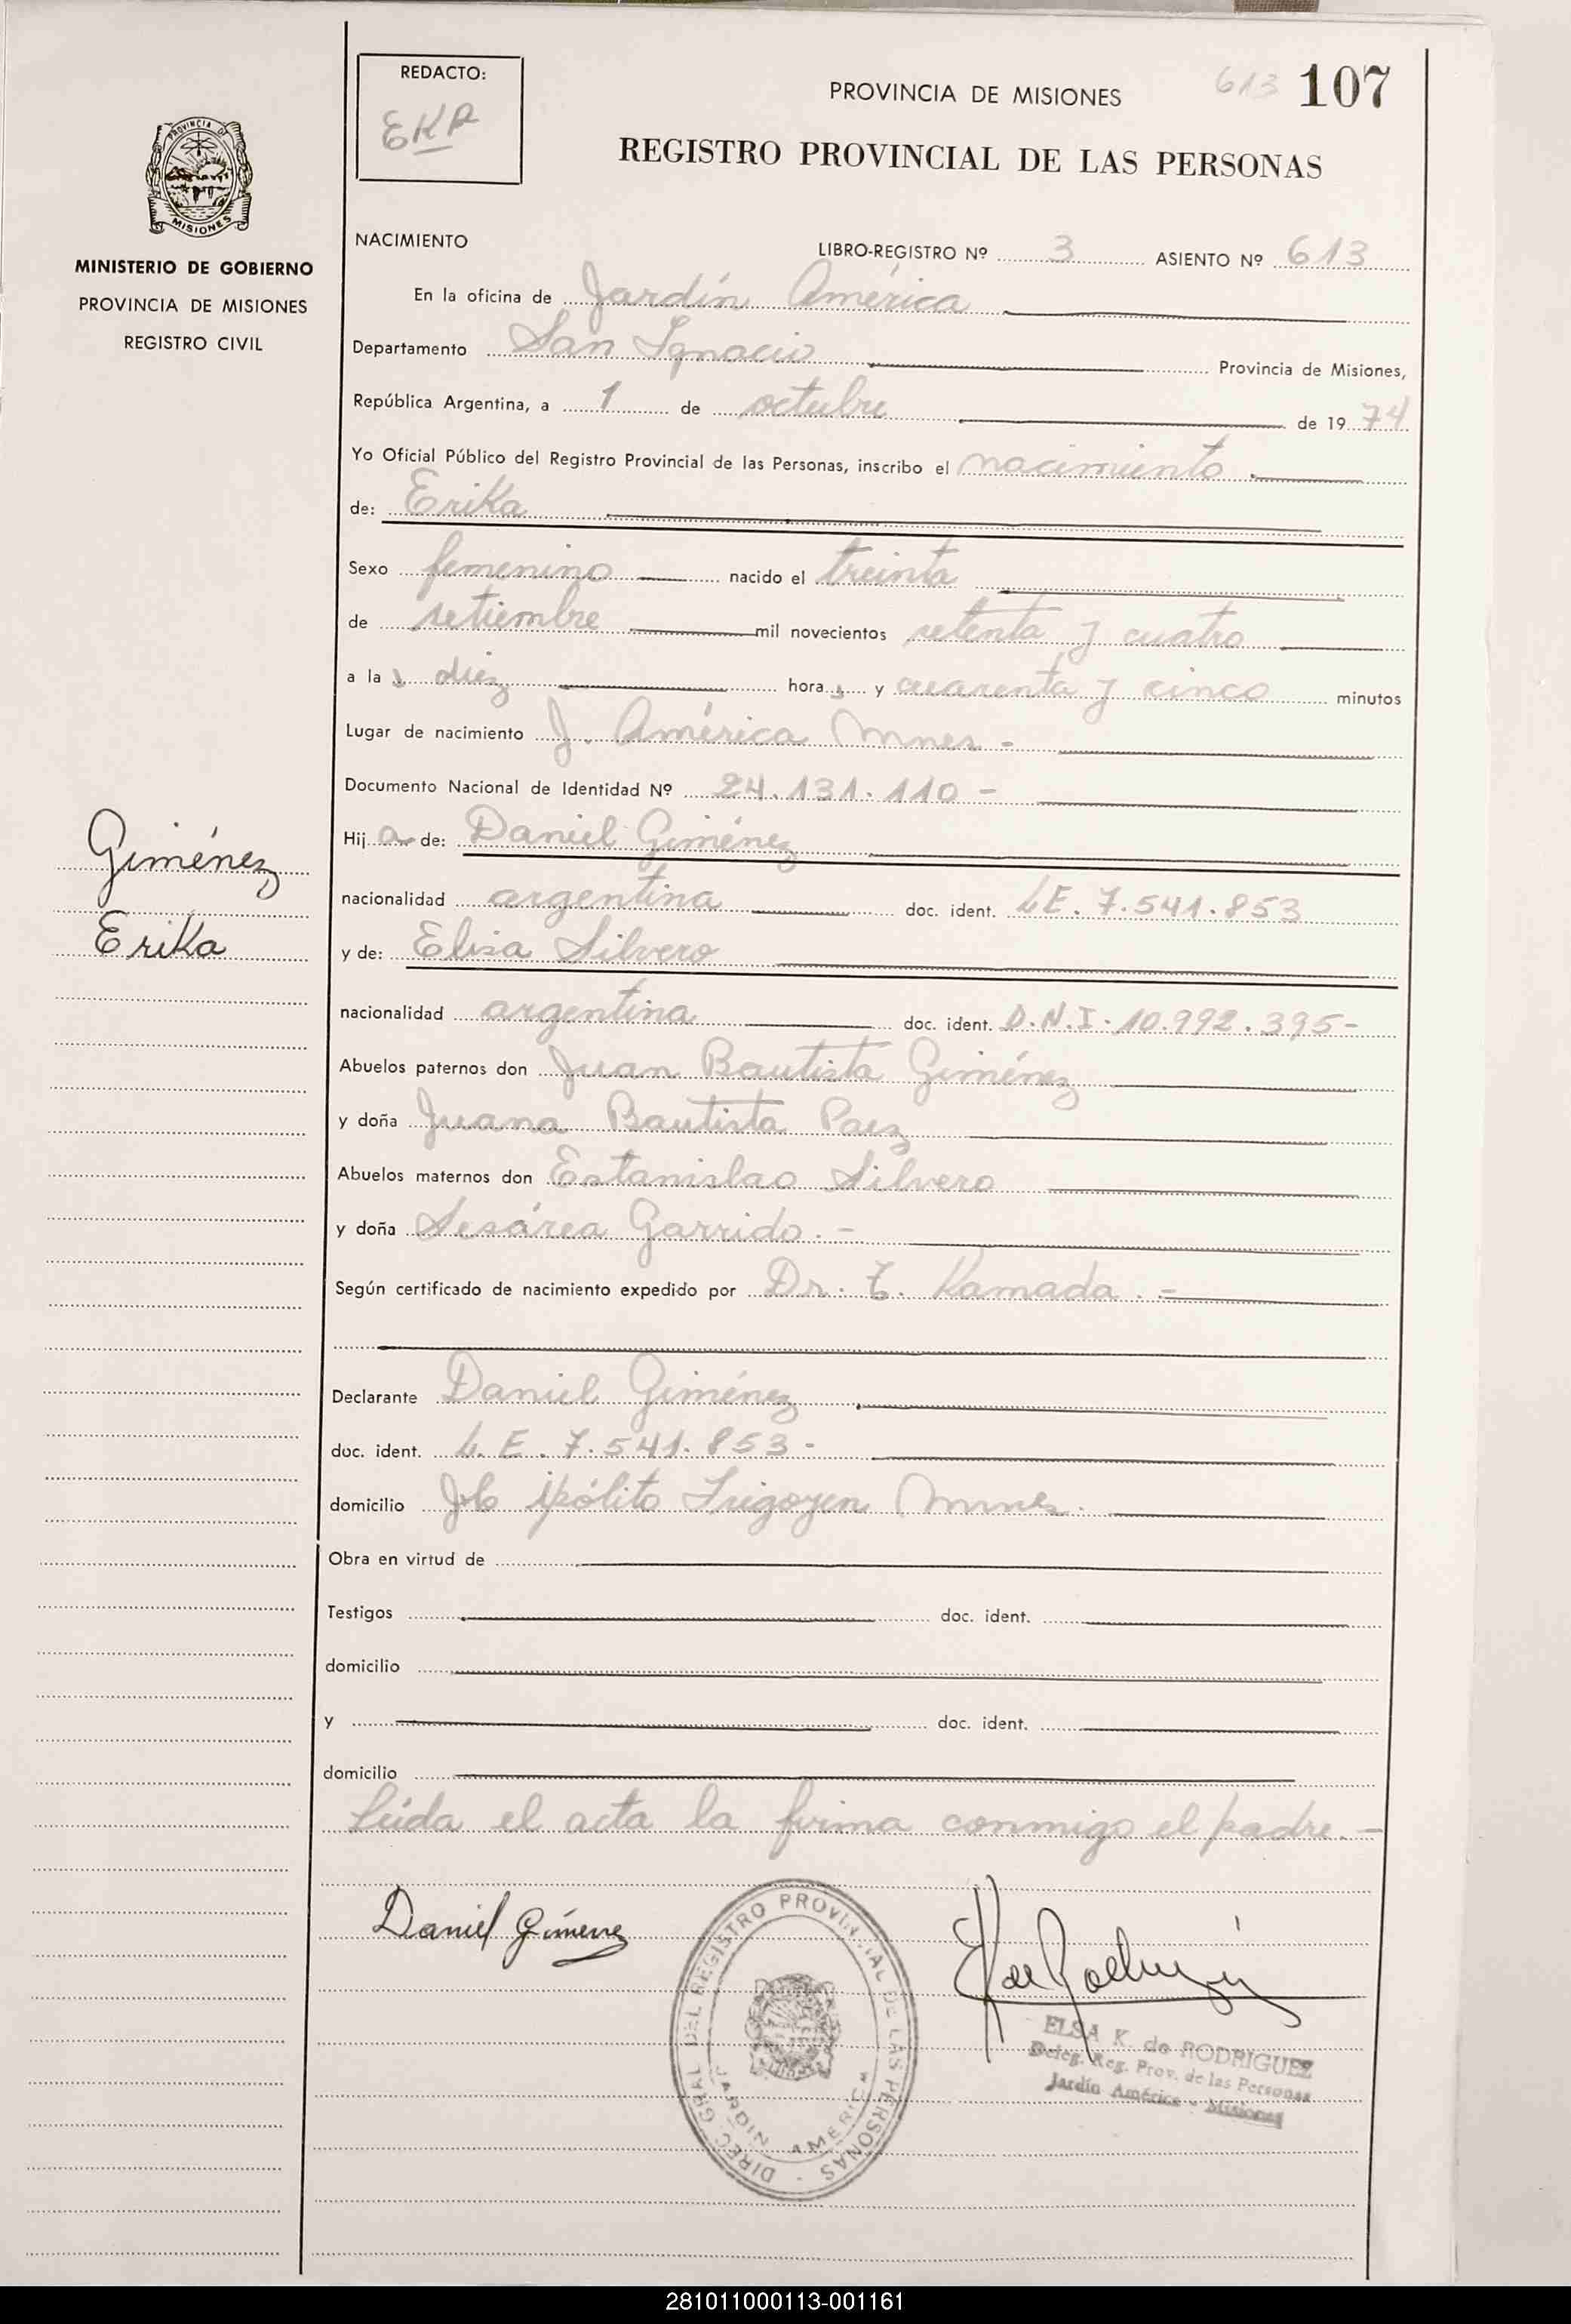 REDACTO:
EKR
PROVINCIA DE MISIONES
613 107
REGISTRO PROVINCIAL DE LAS PERSONAS
PROVINCIA DE
MISIONES
MINISTERIO DE GOBIERNO
PROVINCIA DE MISIONES
REGISTRO CIVIL
Giménez
Erika
NACIMIENTO LIBRO-REGISTRO Nº 3 ASIENTO Nº 613
En la oficina de Jardín América
Departamento San Ignacio Provincia de Misiones,
República Argentina, a 1 de octubre de 1974
Yo Oficial Público del Registro Provincial de las Personas, inscribo el nacimiento
de: Erika
Sexo femenino nacido el treinta
de setiembre mil novecientos setenta y cuatro
a las diez horas y cuarenta y cinco minutos
Lugar de nacimiento J. América Mnes -
Documento Nacional de Identidad Nº 24.131.110 -
Hija de: Daniel Giménez
nacionalidad argentina doc. ident. L.E. 7.541.853
y de: Elisa Silvero
nacionalidad argentina doc. ident. D.N.I. 10.992.395-
Abuelos paternos don Juan Bautista Giménez
y doña Juana Bautista Paez
Abuelos maternos don Estanislao Silvero
y doña Sesárea Garrido. -
Según certificado de nacimiento expedido por Dr. T. Kamada. -
Declarante Daniel Giménez
doc. ident. L.E. 7.541.853-
domicilio Pto ipólito Irigoyen Mnes.
Obra en virtud de
Testigos doc. ident.
domicilio
y doc. ident.
domicilio
Leida el acta la firma conmigo el padre. -
Daniel Gimenez
DIREC. GRAL DEL REGISTRO PROVINCIAL DE LAS PERSONAS -
JARDIN AMERICA
EK de Rodriguez
ELSA K. de RODRIGUEZ
Deleg. Reg. Prov. de las Personas
Jardín América - Misiones
281011000113-001161